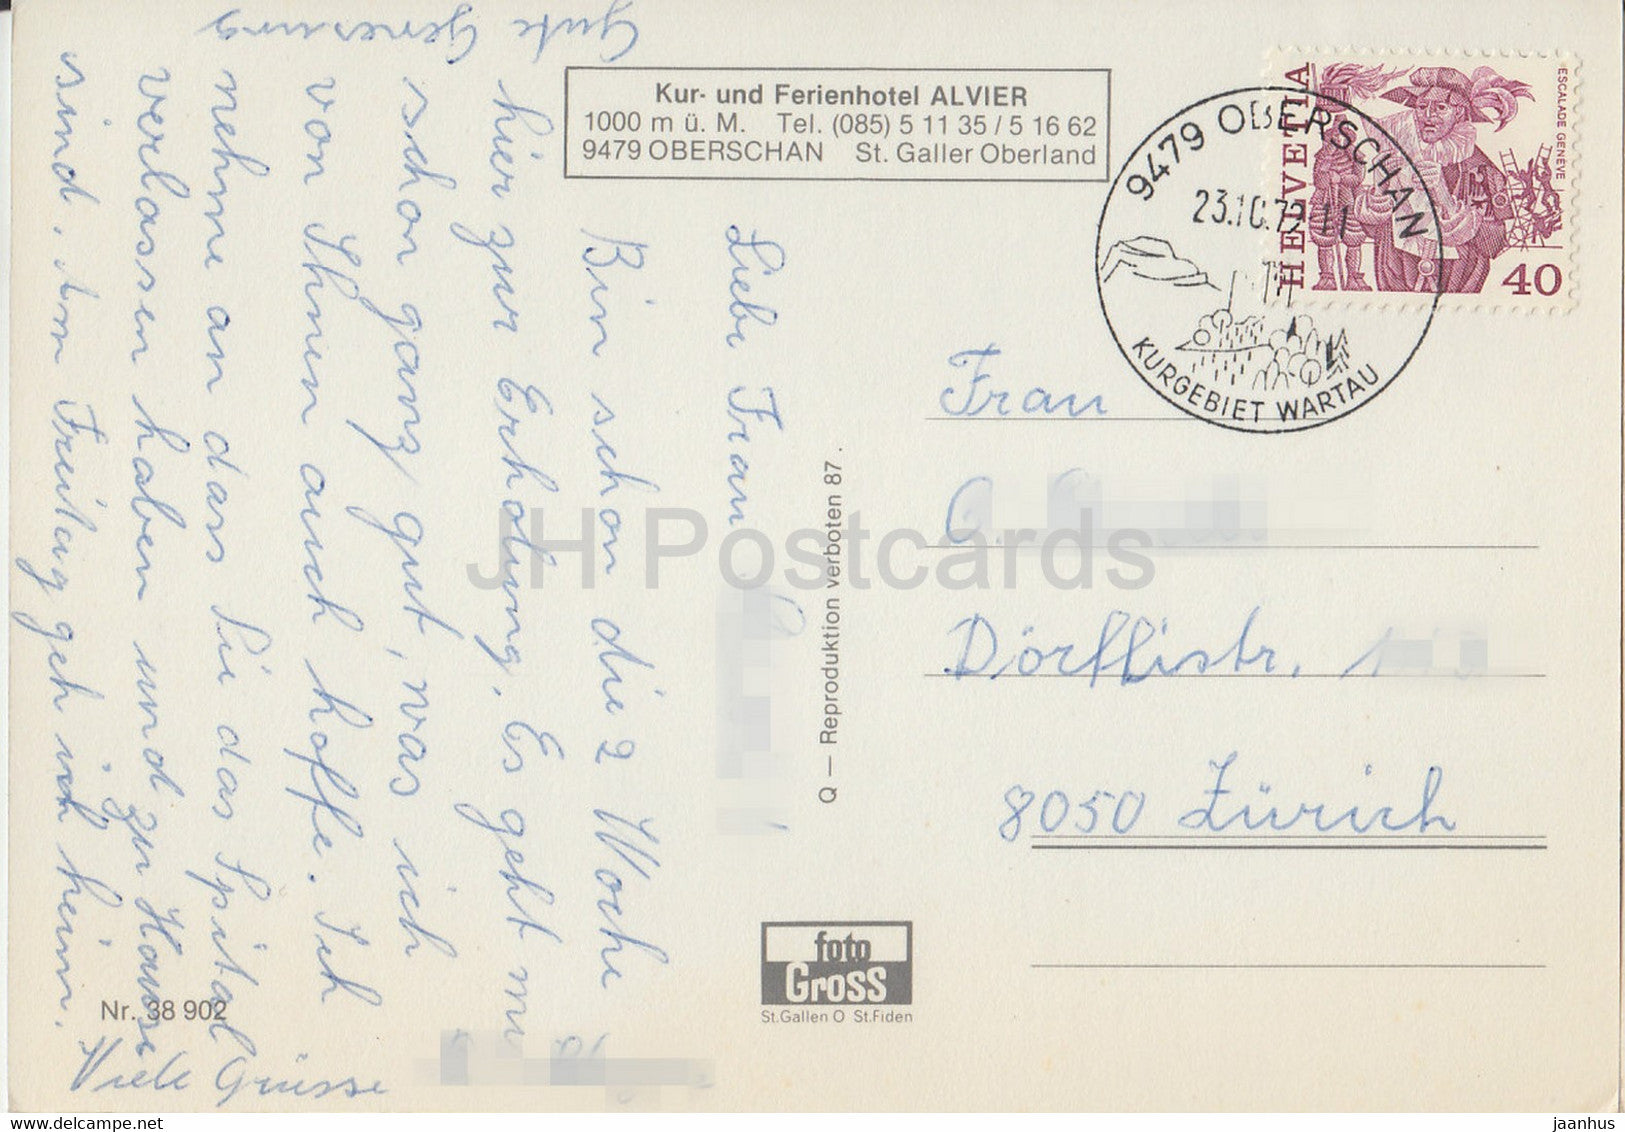 Kur- und Ferienhotel ALVIER
1000 m ü. M. Tel. (085) 5 11 35 / 5 16 62
9479 OBERSCHAN St. Galler Oberland
HELVETIA
ESCALADE GENÈVE
40
9479 OBERSCHAN
23.10.79 11
KURGEBIET WARTAU
Liebe Frau
Bin schon die 2 Woche
hier zur Erholung. Es geht mir
schon ganz gut, was ich
von Ihnen auch hoffe. Ich
nehme an dass Sie das Spital
verlassen haben und zu Hause
sind. Am Freitag geh ich heim.
Gute Genesung
Viele Grüsse
Frau
Dörflistr.
8050 Zürich
Q — Reproduktion verboten 87.
foto
Gross
St.Gallen O St.Fiden
Nr. 38 902
JH Postcards
www.delcampe.net
jaanhus